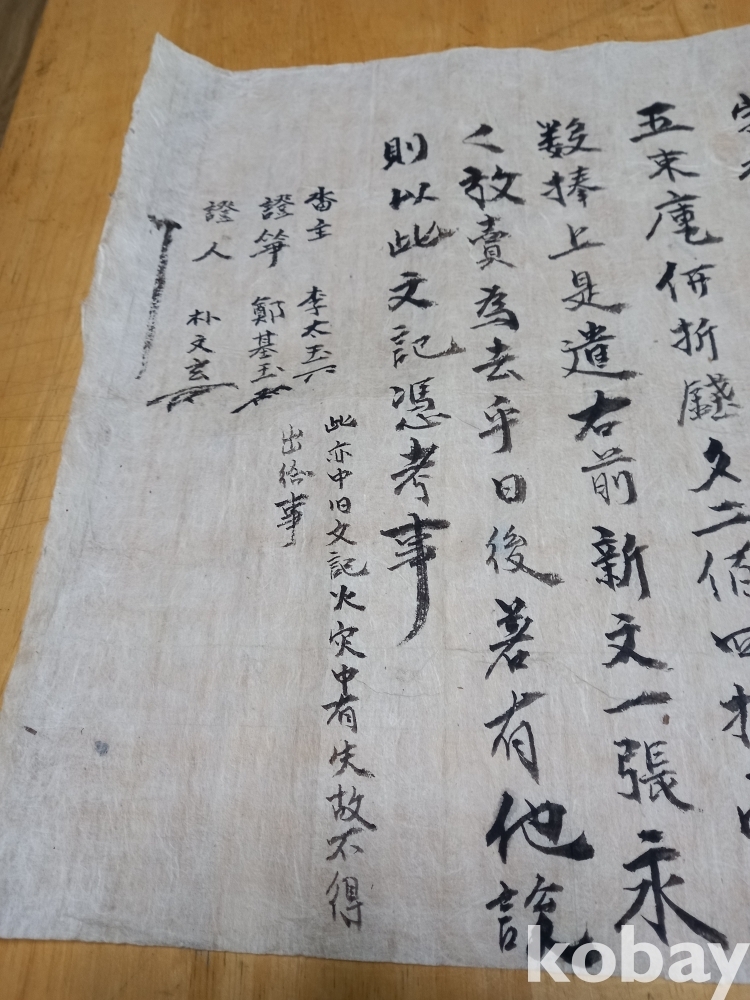 五束庫価折錢文二佰四拾
数捧上是遣右前新文一張永
〻放賣為去乎日後若有他說
則以此文記憑考事
畓主 李太玉
證筆 鄭基玉
證人 朴文玄
此亦中旧文記火灾中有失故不得
出給事
kobay